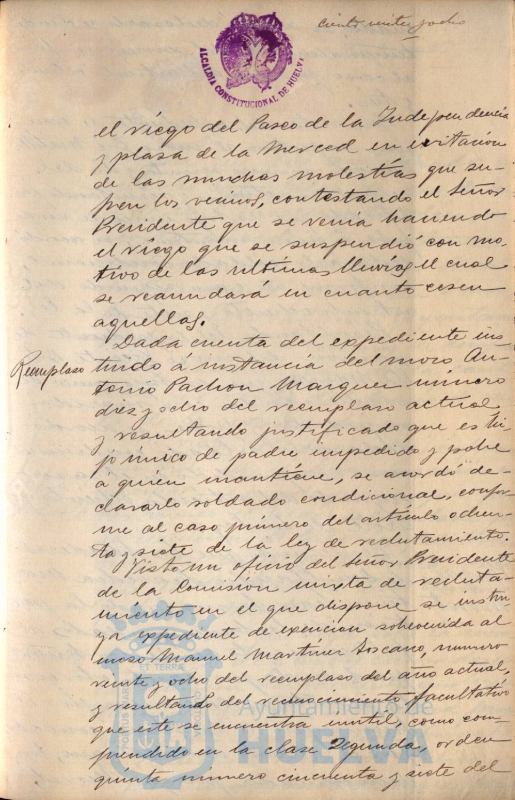 ciento veinte y ocho
ALCALDIA CONSTITUCIONAL DE HUELVA
el riego del Paseo de la Independencia
y plaza de la Merced en evitación
de las muchas molestias que su-
fren los vecinos, contestando el Señor
Presidente que se venía haciendo
el riego que se suspendió con mo-
tivo de las ultimas lluvias el cual
se reanudará en cuanto cesen
aquellas.
Dada cuenta del expediente ins-
Remplaso
truido á instancia del moso An-
tonio Pachon Marquez número
diez y ocho del reemplaso actual
y resultando justificado que es hi-
jo único de padre impedido y pobre
á quien mantiene, se acordó de-
clararlo soldado condicional, confor-
me al caso primero del artículo ochen-
ta y siete de la ley de reclutamiento.
Visto un oficio del Señor Presidente
de la Comisión mixta de recluta-
miento en el que dispone se instru-
ya expediente de exencion sobrevenida al
moso Manuel Martinez Toscano, numero
veinte y ocho del remplaso del año actual,
y resultando del reconocimiento facultativo
que este se encuentra inutil, como com-
prendido en la clase segunda, orden
quinta número cincuenta y siete del
Ayuntamiento de
HUELVA